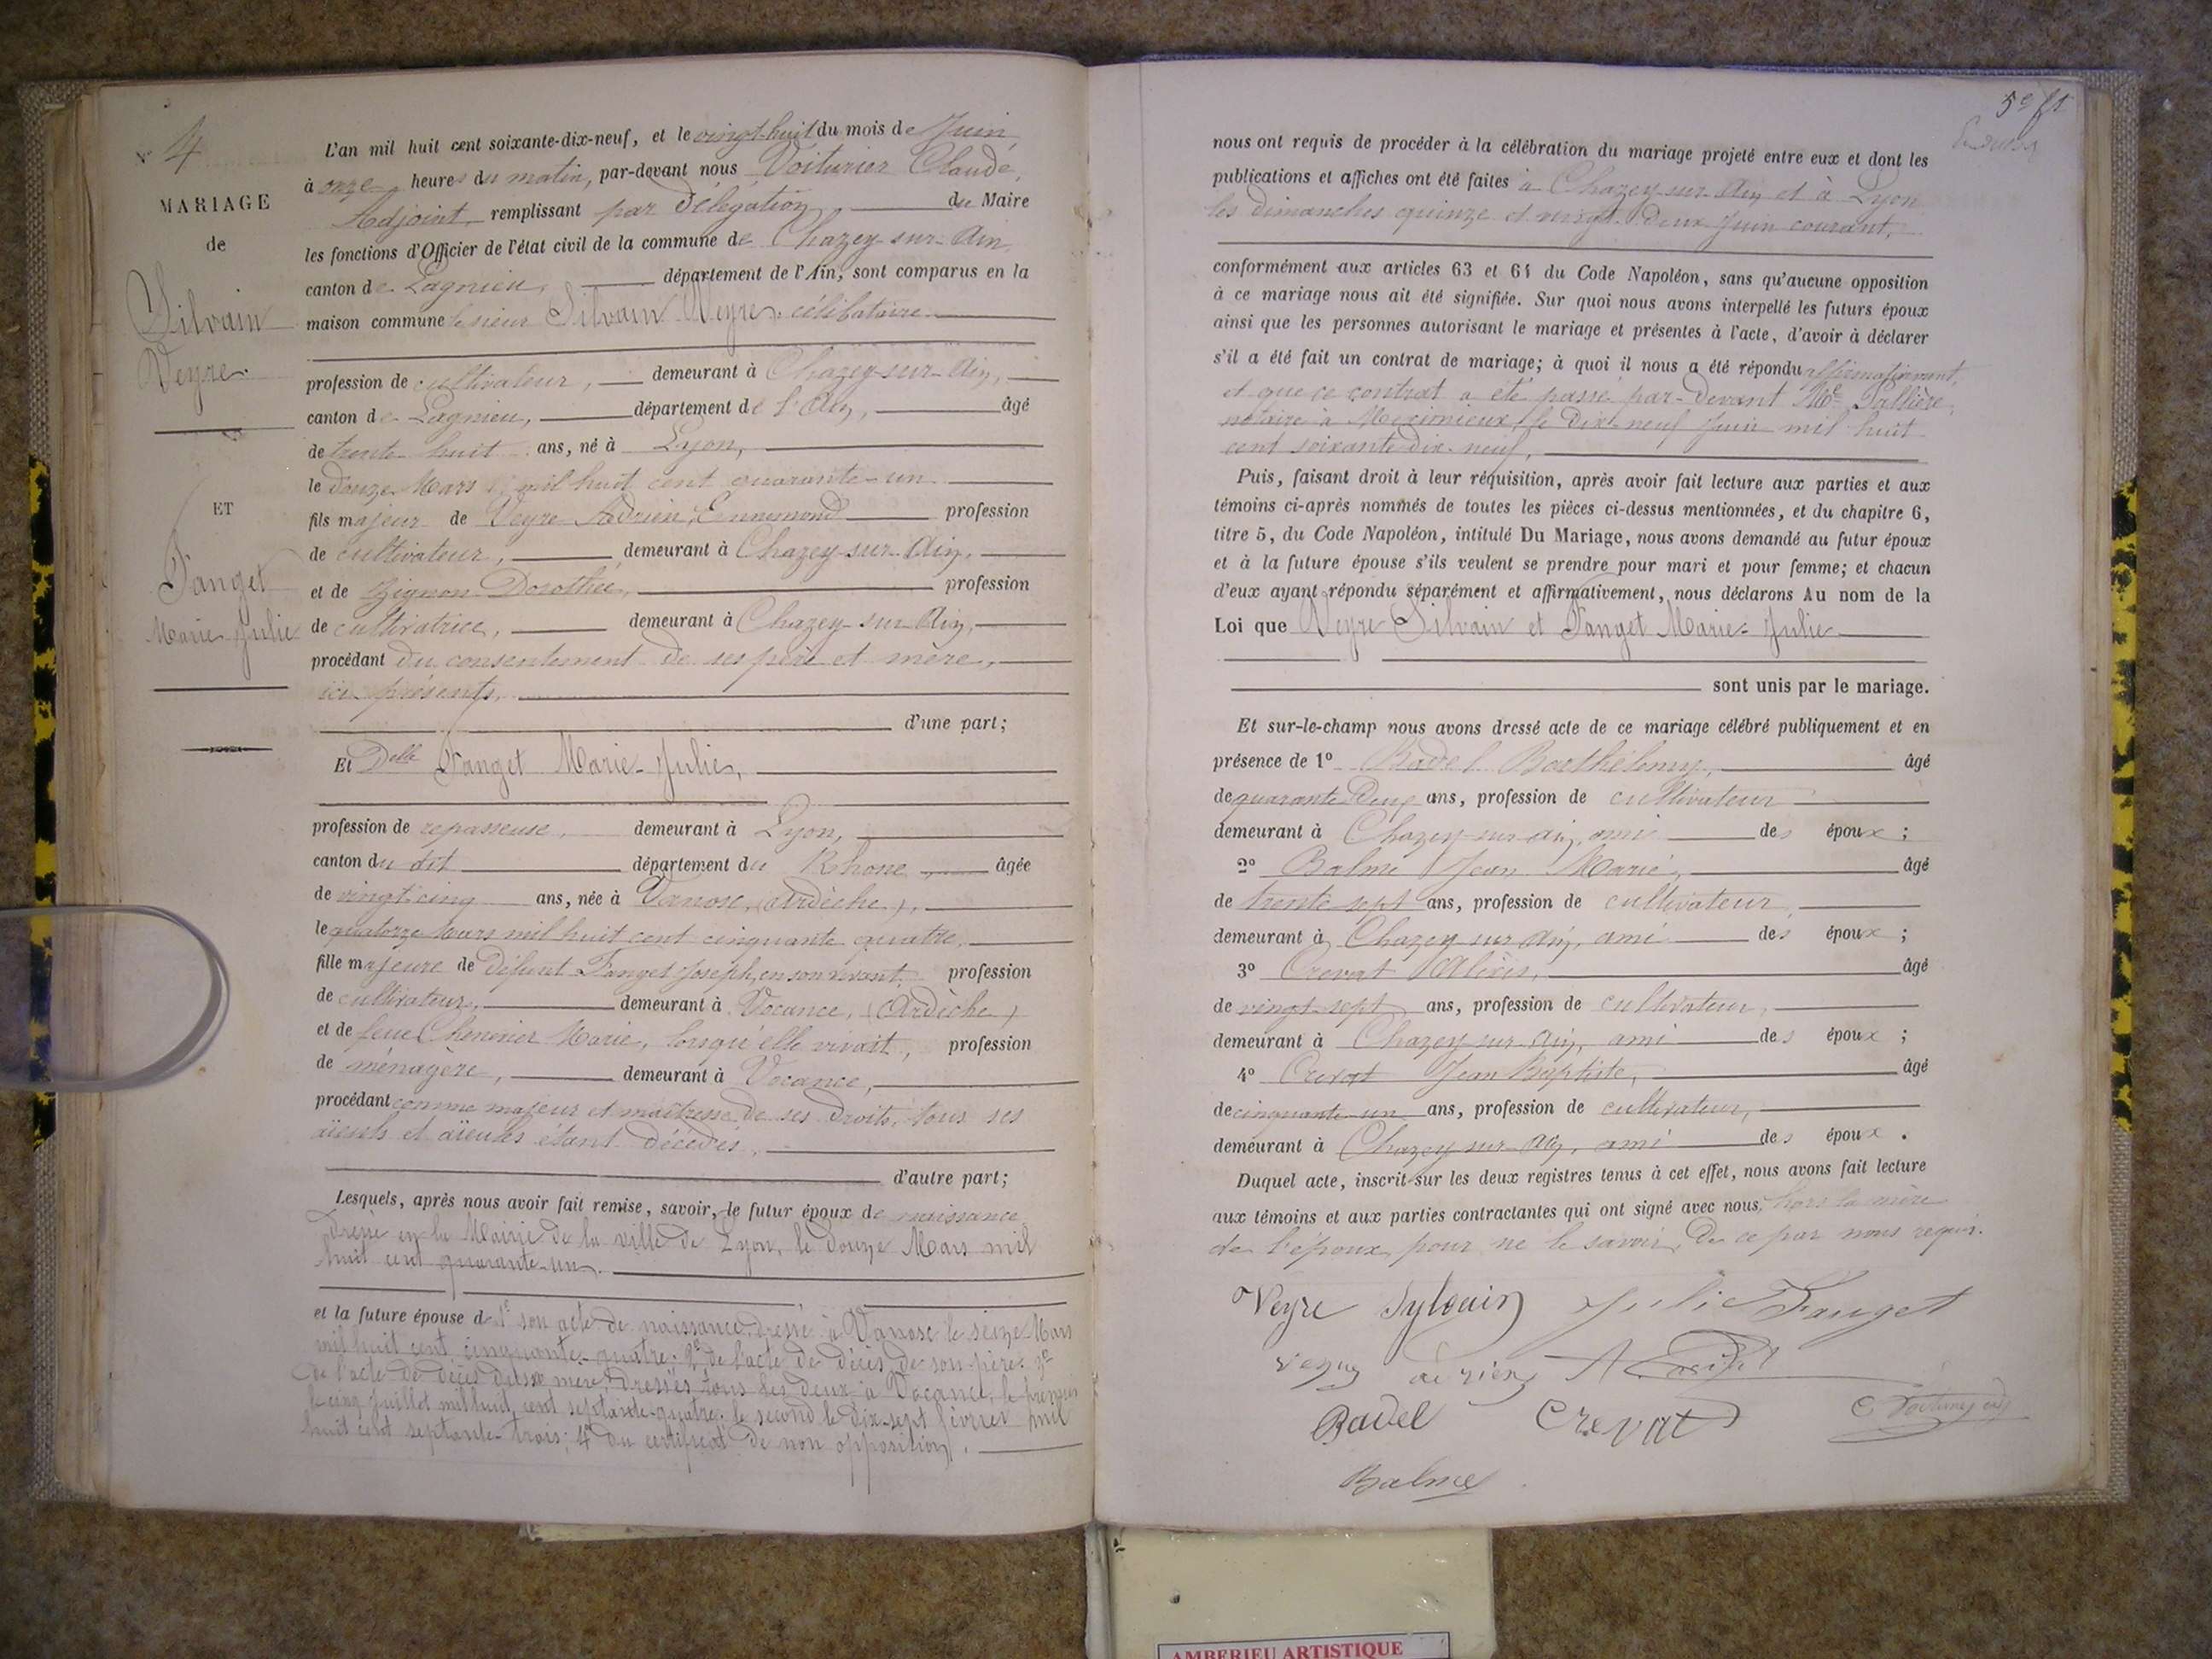 N° 4
MARIAGE
de
Silvain
Veyre.
ET
Fanget
Marie-Julie
L'an mil huit cent soixante-dix-neuf, et le vingt-huit du mois de Juin,
à onze heures du matin, par-devant nous Voiturier Claude,
Adjoint remplissant par délégation du Maire
les fonctions d'Officier de l'état civil de la commune de Chazey-sur-Ain,
canton de Lagnieu, département de l'Ain, sont comparus en la
maison commune le sieur Silvain Veyre, célibataire
profession de cultivateur, demeurant à Chazey-sur-Ain,
canton de Lagnieu, département de l'Ain, âgé
de trente-huit ans, né à Lyon,
le douze Mars mil huit cent quarante-un
fils majeur de Veyre Adrien, Ennemond profession
de cultivateur, demeurant à Chazey-sur-Ain,
et de Dorothée, profession
de cultivatrice, demeurant à Chazey-sur-Ain,
procédant du consentement de ses père et mère,
ici présents,
d'une part;
Et Delle Fanget Marie-Julie,
profession de repasseuse, demeurant à Lyon,
canton du dit département du Rhone, âgée
de vingt-cinq ans, née à Vanosc, (Ardèche),
le quatorze Mars mil huit cent cinquante quatre,
fille majeure de défunt Fanget Joseph, en son vivant, profession
de cultivateur, demeurant à Vocance, (Ardèche)
et de feue Marie, lorsqu'elle vivait, profession
de ménagère, demeurant à Vocance,
procédant comme majeur et maîtresse de ses droits, tous ses
aïeuls et aïeules étant décédés,
d'autre part;
Lesquels, après nous avoir fait remise, savoir, le futur époux de naissance
dressé en la Mairie de la ville de Lyon, le douze Mars mil
huit cent quarante-un.
et la future épouse d 1° son acte de naissance dressé à Vanosc le seize Mars
mil huit cent cinquante-quatre; 2° de l'acte de décès de son père. 3°
de l'acte de décès de sa mère, dressés tous les deux à Vocance, le premier
le cinq Juillet mil huit cent septante-quatre, le second le dix-sept février mil
huit cent septante-trois; 4° du certificat de non opposition.
5e ft
nous ont requis de procéder à la célébration du mariage projeté entre eux et dont les
publications et affiches ont été faites à Chazey-sur-Ain et à Lyon
les dimanches quinze et vingt-deux Juin courant,
conformément aux articles 63 et 64 du Code Napoléon, sans qu'aucune opposition
à ce mariage nous ait été signifiée. Sur quoi nous avons interpellé les futurs époux
ainsi que les personnes autorisant le mariage et présentes à l'acte, d'avoir à déclarer
s'il a été fait un contrat de mariage; à quoi il nous a été répondu affirmativement,
et que ce contrat a été passé par-devant Me Pallière,
notaire à Meximieux, le dix-neuf Juin mil huit
cent soixante-dix-neuf,
Puis, faisant droit à leur réquisition, après avoir fait lecture aux parties et aux
témoins ci-après nommés de toutes les pièces ci-dessus mentionnées, et du chapitre 6,
titre 5, du Code Napoléon, intitulé Du Mariage, nous avons demandé au futur époux
et à la future épouse s'ils veulent se prendre pour mari et pour femme; et chacun
d'eux ayant répondu séparément et affirmativement, nous déclarons Au nom de la
Loi que Veyre Silvain et Fanget Marie-Julie
sont unis par le mariage.
Et sur-le-champ nous avons dressé acte de ce mariage célébré publiquement et en
présence de 1° Badel Barthélemy, âgé
de quarante-deux ans, profession de cultivateur
demeurant à Chazey-sur-Ain, ami des époux;
2° Balme Jean Marie, âgé
de trente-sept ans, profession de cultivateur,
demeurant à Chazey-sur-Ain, ami des époux;
3° Crevat Alexis, âgé
de vingt-sept ans, profession de cultivateur,
demeurant à Chazey-sur-Ain, ami des époux;
4° Crevat Jean Baptiste, âgé
de cinquante-un ans, profession de cultivateur,
demeurant à Chazey-sur-Ain, ami des époux.
Duquel acte, inscrit sur les deux registres tenus à cet effet, nous avons fait lecture
aux témoins et aux parties contractantes qui ont signé avec nous, hors la mère
de l'époux, pour ne le savoir, de ce par nous requis.
Veyre Sylvain Julie Fanget
adrien
Badel Crevat
Balme
AMBERIEU ARTISTIQUE